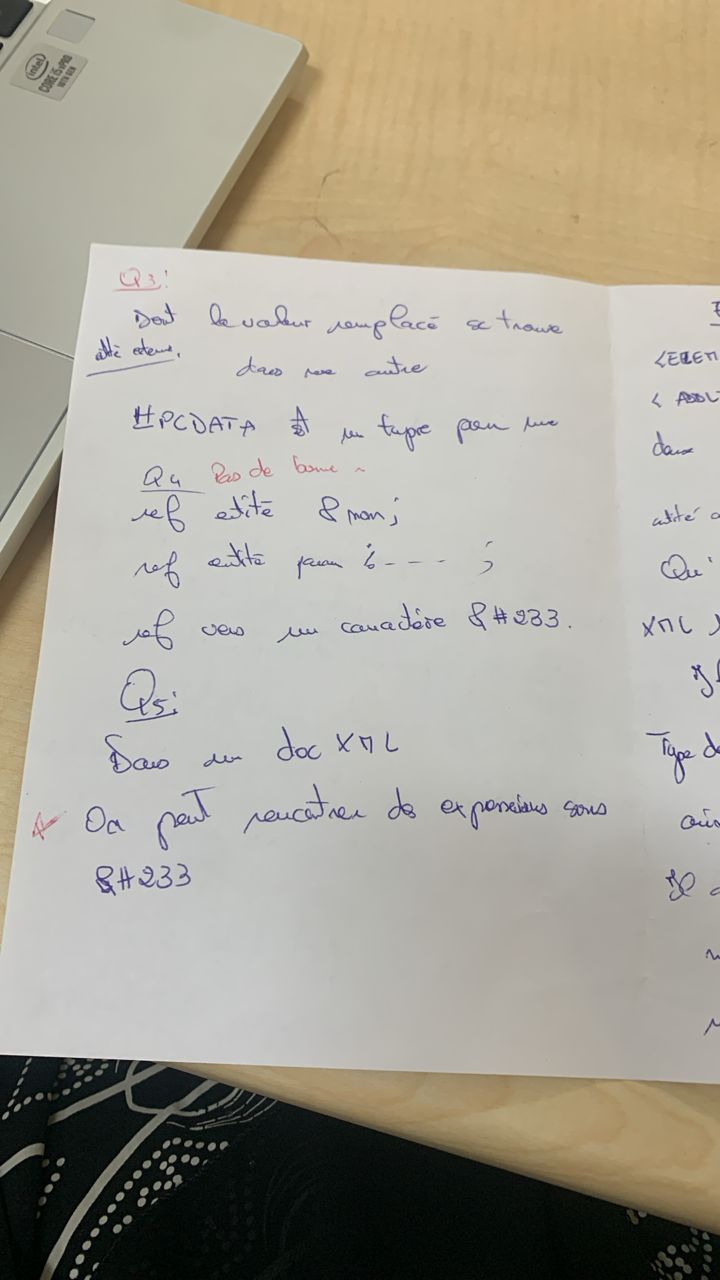 intel
CORE i5 vPRO
10TH GEN
Q3:
Dont la valeur remplacé se trouve
dans une autre
#PCDATA est un type pour une
Q4 Pas de bonne
ref etité &nom;
ref entité param %---- ;
ref vers un caractère &#233.
Q5:
Dans un doc XML
On peut rencontrer des expressions sous
&#233
<ELEM
dans
entité
Qu'
XML
Type de